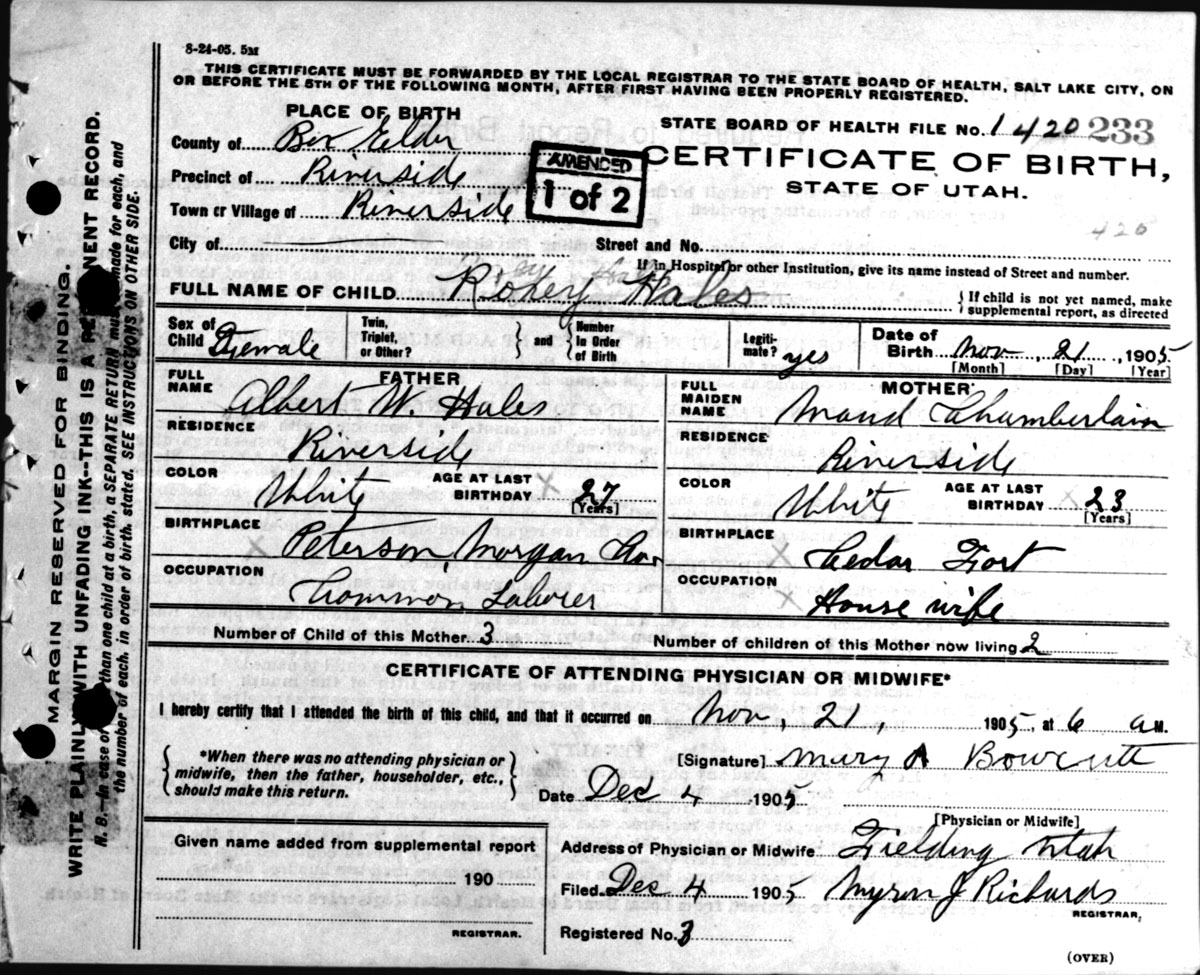 8-24-05. 5M
THIS CERTIFICATE MUST BE FORWARDED BY THE LOCAL REGISTRAR TO THE STATE BOARD OF HEALTH, SALT LAKE CITY, ON
OR BEFORE THE 5TH OF THE FOLLOWING MONTH, AFTER FIRST HAVING BEEN PROPERLY REGISTERED.
PLACE OF BIRTH
STATE BOARD OF HEALTH FILE No. 1420 233
County of Box Elder
CERTIFICATE OF BIRTH,
STATE OF UTAH.
AMENDED
1 of 2
Precinct of Riverside
Town or Village of Riverside
420
City of Street and No.
If in Hospital or other Institution, give its name instead of Street and number.
FULL NAME OF CHILD Hales
If child is not yet named, make
supplemental report, as directed
Sex of Child Female Twin, Triplet, or Other? and Number In Order of Birth Legitimate? yes Date of Birth Nov 21, 1905
[Month] [Day] [Year]
FATHER MOTHER
FULL NAME Albert W. Hales
FULL MAIDEN NAME Maud Chamberlain
RESIDENCE Riverside
RESIDENCE Riverside
COLOR White AGE AT LAST BIRTHDAY 27 [Years]
COLOR White AGE AT LAST BIRTHDAY 23 [Years]
BIRTHPLACE Peterson, Morgan Co
BIRTHPLACE Cedar Fort
OCCUPATION Common Laborer
OCCUPATION House wife
Number of Child of this Mother 3 Number of children of this Mother now living 2
CERTIFICATE OF ATTENDING PHYSICIAN OR MIDWIFE*
I hereby certify that I attended the birth of this child, and that it occurred on Nov, 21, 1905, at 6 a M.
*When there was no attending physician or
midwife, then the father, householder, etc.,
should make this return.
[Signature] Mary A Bowcutt
Date Dec 4 1905
[Physician or Midwife]
Given name added from supplemental report
190
REGISTRAR.
Address of Physician or Midwife Fielding Utah
Filed Dec 4 1905 Myron J Richards
REGISTRAR,
Registered No. 3
(OVER)
MARGIN RESERVED FOR BINDING.
WRITE PLAINLY WITH UNFADING INK--THIS IS A PERMANENT RECORD.
N. B.--In case of than one child at a birth, a SEPARATE RETURN must made for each, and
the number of each, in order of birth, stated. SEE INSTRUCTIONS ON OTHER SIDE.